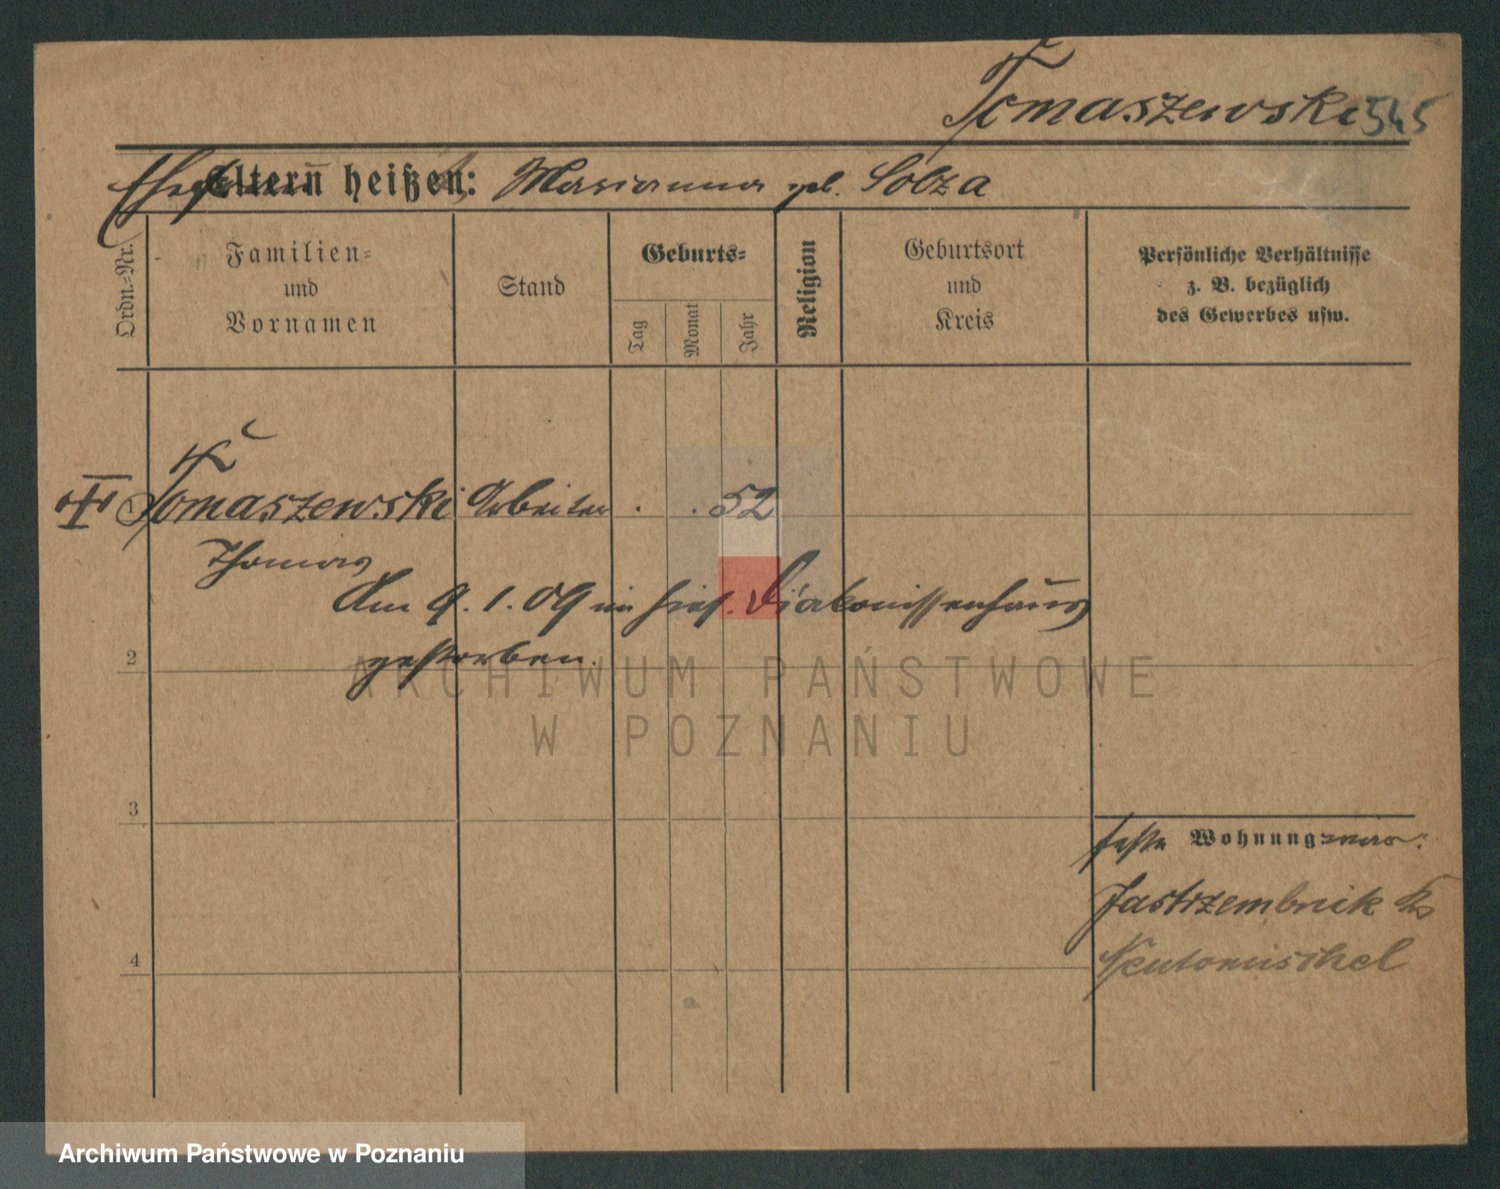 Tomaszewski 545
Eltern heißen: Marianna geb. Solza
Ordn.-Nr.
Familien-
und
Vornamen
Stand
Geburts-
Tag
Monat
Jahr
Religion
Geburtsort
und
Kreis
Persönliche Verhältnisse
z. B. bezüglich
des Gewerbes usw.
Tomaszewski Arbeiter . . 52
Thomas
Am 9. 1. 09 im hies. Diakonissenhaus
gestorben.
2
3
4
feste Wohnung war:
Jastrzembnik Krs
Neutomischel
ARCHIWUM PAŃSTWOWE
W POZNANIU
Archiwum Państwowe w Poznaniu